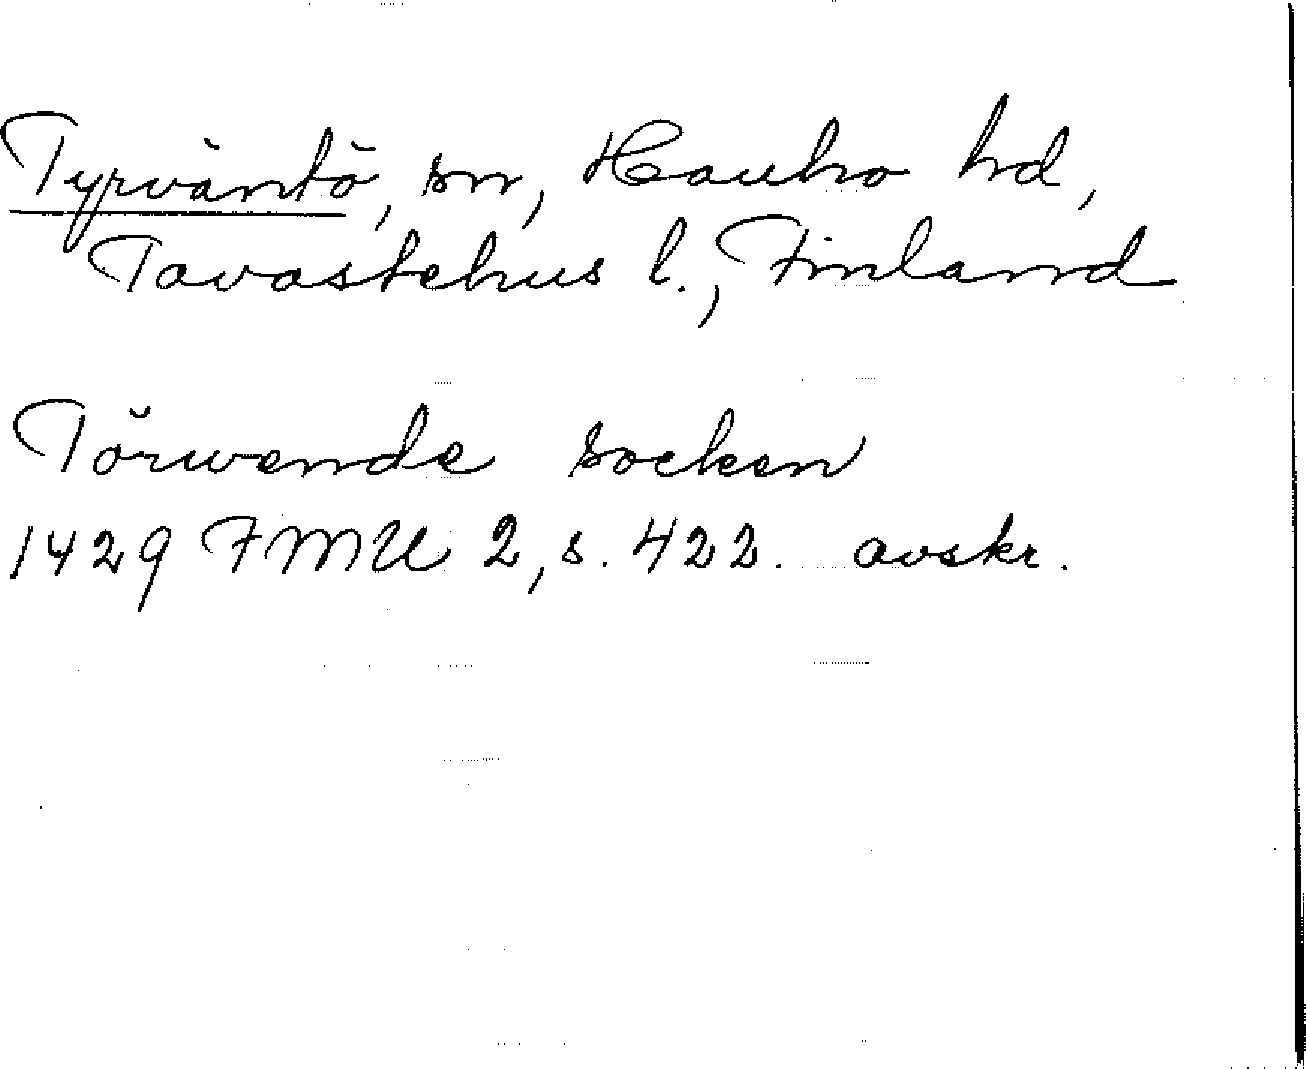 Tyrväntö, sn, Hauho hd,
Tavastehus l., Finland
Törwende socken
1429 FMU 2, s. 422. avskr.